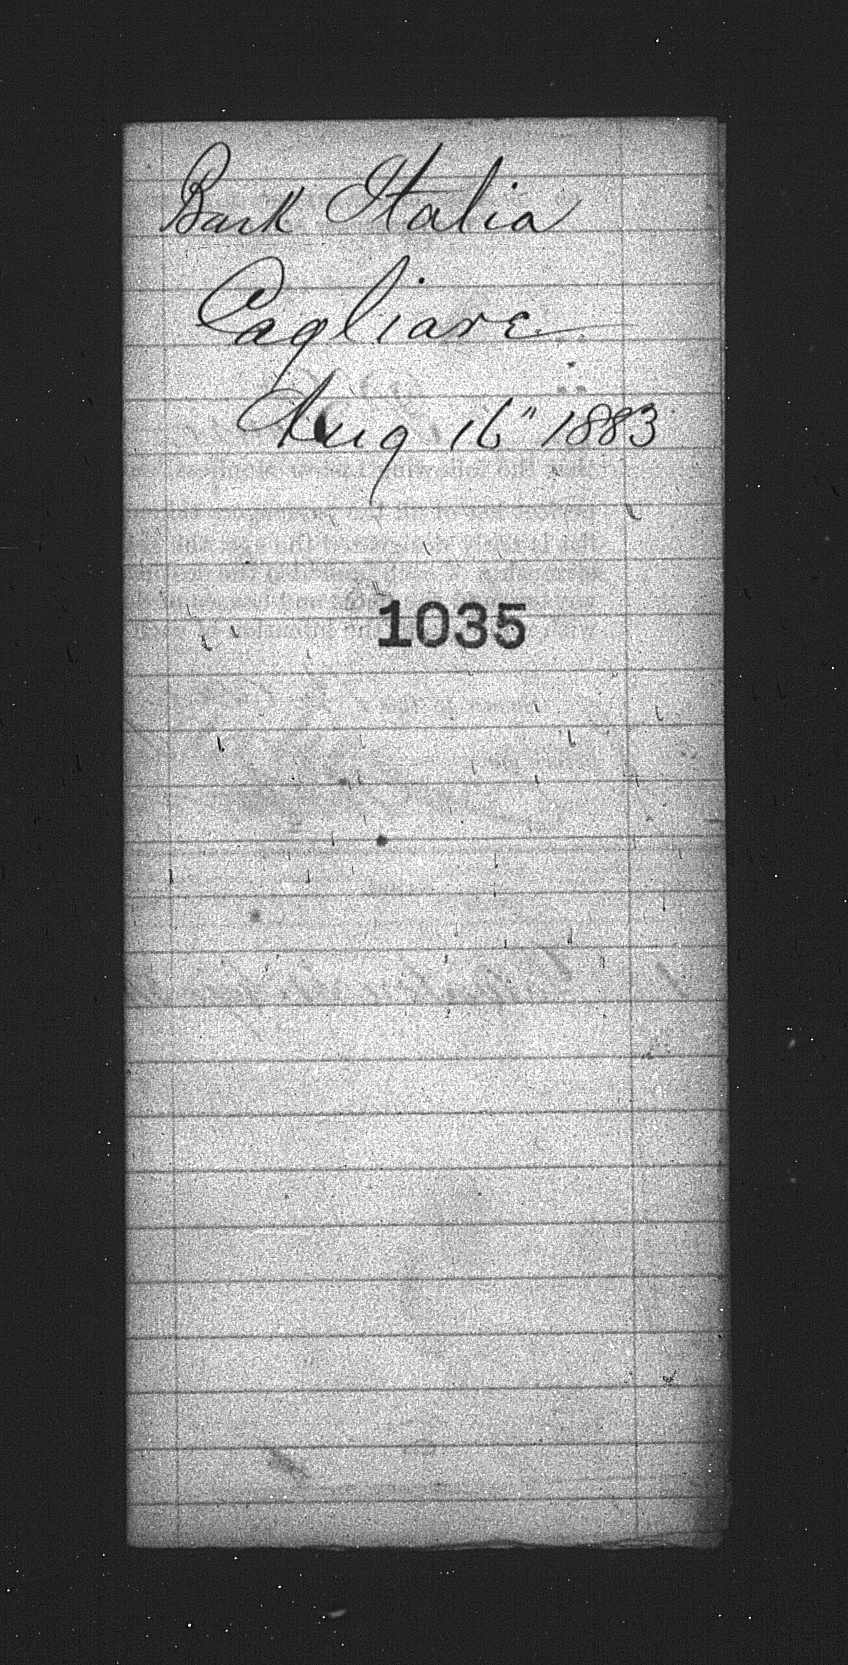 Bark Italia
Cagliare
Aug 16" 1883
1035